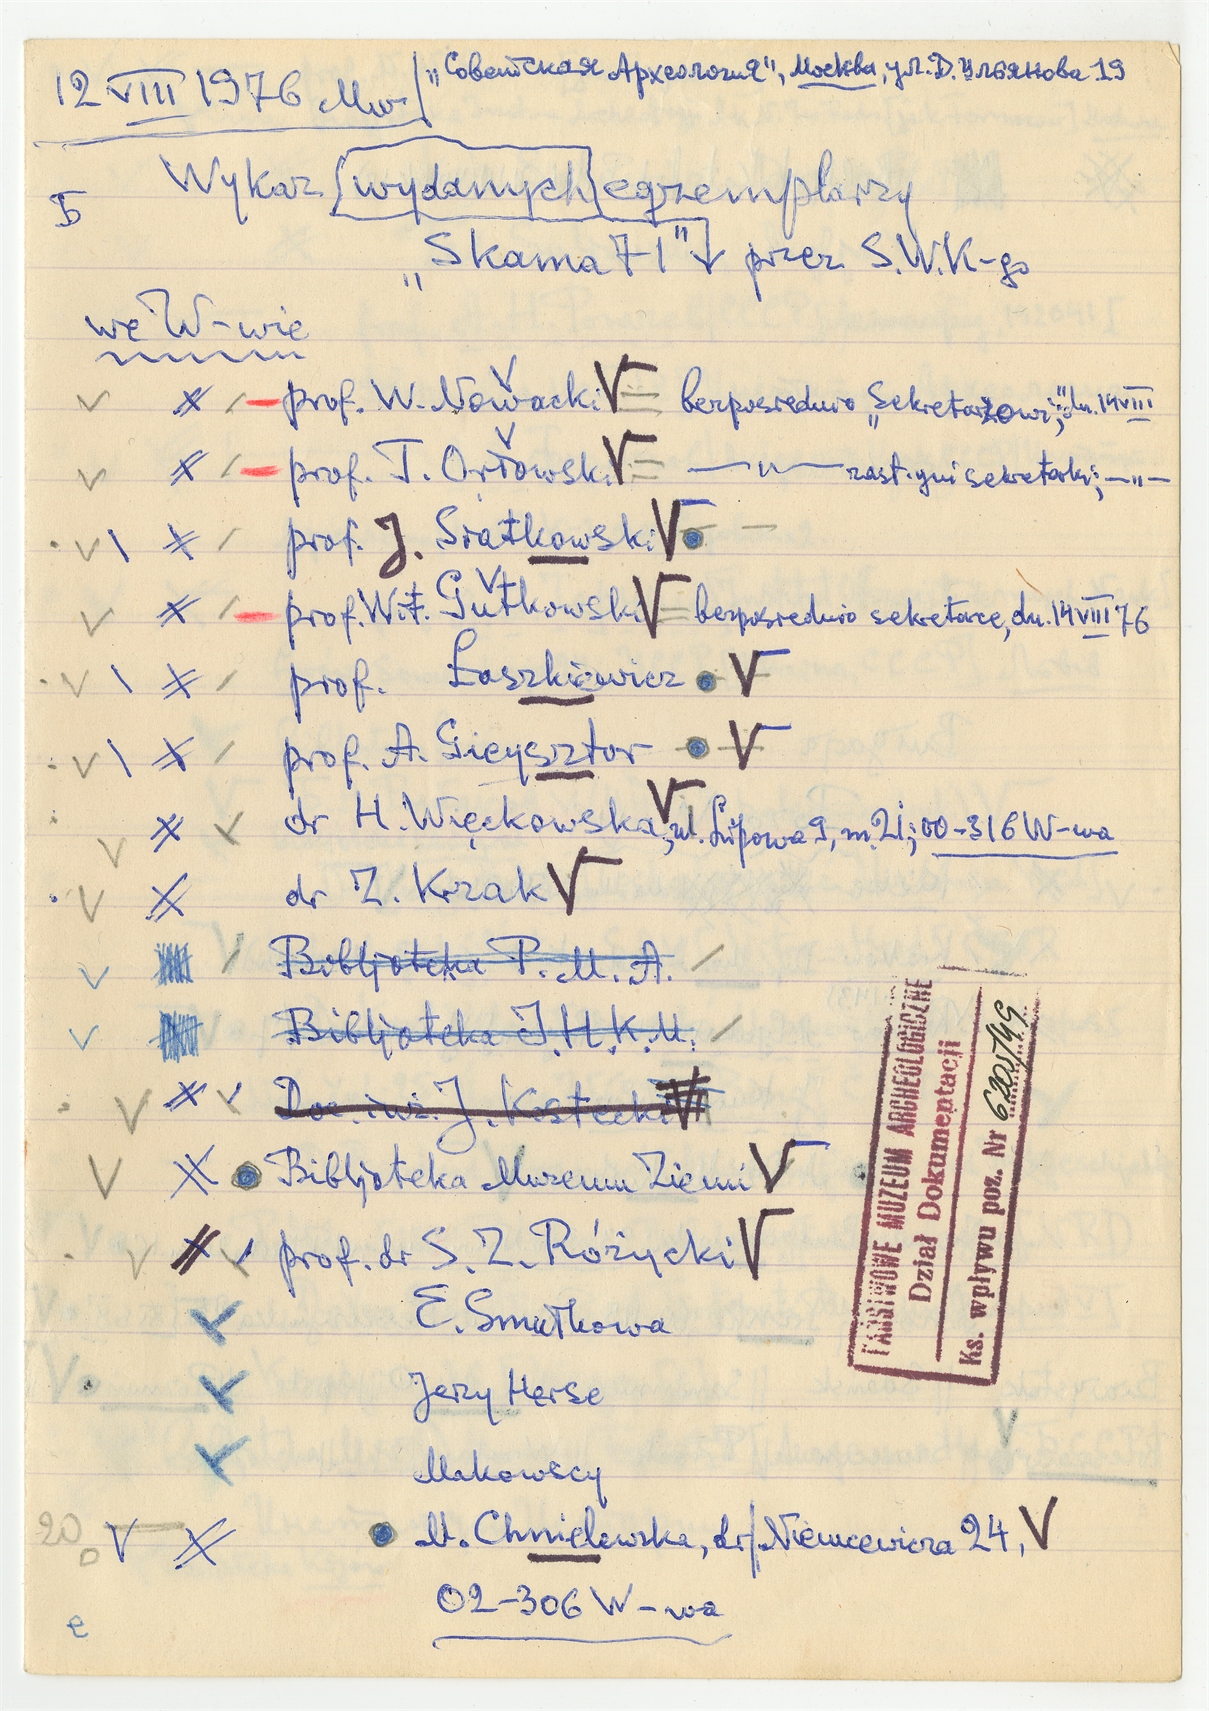 12 VIII 1976 „Советская Археология”, Москва, ул. Д. Ульянова 19
Wykaz wydanych egzemplarzy
„Skama 71” przez S.W.K-go
we W-wie
prof. W. Nowacki bezpośrednio „Sekretarzowi”; dn. 14 VIII
prof. T. Orłowski —„— zast. gni sekretarki; —„—
prof. J. Siatkowski
prof. Wit. Gutkowski bezpośrednio sekretarce, dn. 14 VIII 76
prof. Łaszkiewicz
prof. A. Gieysztor
dr H. Więckowska, ul. Lipowa 9, m. 21; 00-316 W-wa
dr Z. Krzak
Bibljoteka P.M.A.
Bibljoteka I.H.K.M.
Doc. inż. J. Kostecki
Bibljoteka Muzeum Ziemi
prof. dr S. Z. Różycki
E. Smutkowa
Jerzy Herse
Makowscy
20 M. Chmielewska, dr, Niemcewicza 24,
02-306 W-wa
e
PAŃSTWOWE MUZEUM ARCHEOLOGICZNE
Dział Dokumentacji
Ks. wpływu poz. Nr